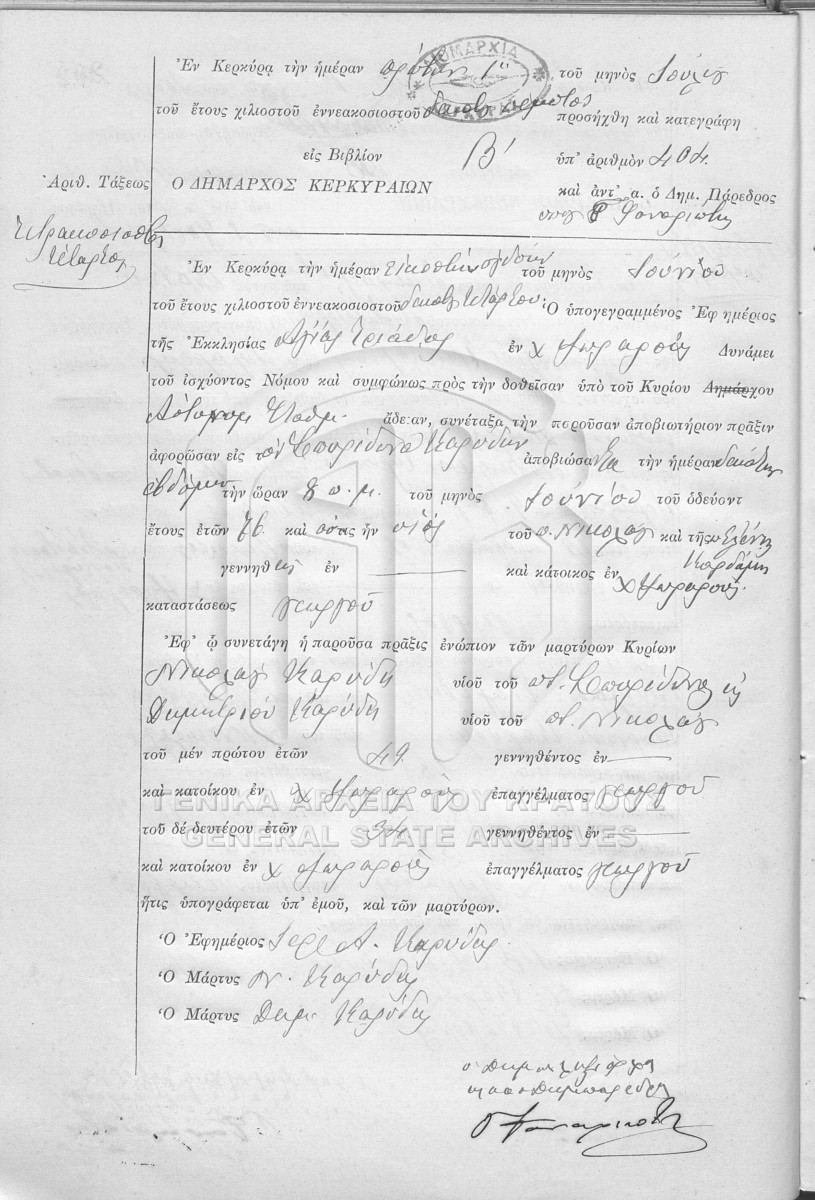 Ἐν Κερκύρᾳ τὴν ἡμέραν πρώτην 1ην τοῦ μηνὸς Ἰουλίου
τοῦ ἔτους χιλιοστοῦ ἐννεακοσιοστοῦ δεκάτου προσήχθη καὶ κατεγράφη
εἰς Βιβλίον Β' ὑπ' ἀριθμὸν 404.
Ἀριθ. Τάξεως Ο ΔΗΜΑΡΧΟΣ ΚΕΡΚΥΡΑΙΩΝ καὶ ἀντ' α. ὁ Δημ. Πάρεδρος
Τετρακοσιοστὸς
τέταρτος
Ἐν Κερκύρᾳ τὴν ἡμέραν εἰκοστὴν ὀγδόην τοῦ μηνὸς Ἰουνίου
τοῦ ἔτους χιλιοστοῦ ἐννεακοσιοστοῦ δεκάτου τετάρτου Ὁ ὑπογεγραμμένος Ἐφημέριος
τῆς Ἐκκλησίας Ἁγίας Τριάδος ἐν χ Δυνάμει
τοῦ ἰσχύοντος Νόμου καὶ συμφώνως πρὸς τὴν δοθεῖσαν ὑπὸ τοῦ Κυρίου Δημάρχου
ἄδειαν, συνέταξα τὴν παροῦσαν ἀποβιωτήριον πρᾶξιν
ἀφορῶσαν εἰς τὸν Σπυρίδωνα Καρύδην ἀποβιώσαντα τὴν ἡμέραν δεκάτην
ἑβδόμην τὴν ὥραν 8 π.μ. τοῦ μηνὸς Ἰουνίου τοῦ ὁδεύοντ
ἔτους ἐτῶν 76 καὶ ὅστις ἦν υἱὸς τοῦ π. Νικολάου καὶ τῆς Ἑλένης
γεννηθεὶς ἐν — καὶ κάτοικος ἐν χ
καταστάσεως γεωργοῦ
Ἐφ' ᾧ συνετάγη ἡ παροῦσα πρᾶξις ἐνώπιον τῶν μαρτύρων Κυρίων
Νικολάου Καρύδη υἱοῦ τοῦ π. Σπυρίδωνος
Δημητρίου Καρύδη υἱοῦ τοῦ π. Νικολάου
τοῦ μὲν πρώτου ἐτῶν 49. γεννηθέντος ἐν —
καὶ κατοίκου ἐν χ ἐπαγγέλματος γεωργοῦ
ΓΕΝΙΚΑ ΑΡΧΕΙΑ ΤΟΥ ΚΡΑΤΟΥΣ
τοῦ δὲ δευτέρου ἐτῶν 34. γεννηθέντος ἐν —
GENERAL STATE ARCHIVES
καὶ κατοίκου ἐν χ ἐπαγγέλματος γεωργοῦ
ἥτις ὑπογράφεται ὑπ' ἐμοῦ, καὶ τῶν μαρτύρων.
Ὁ Ἐφημέριος Ἱερ. Α. Καρύδης
Ὁ Μάρτυς Ν. Καρύδης
Ὁ Μάρτυς Δημ. Καρύδης